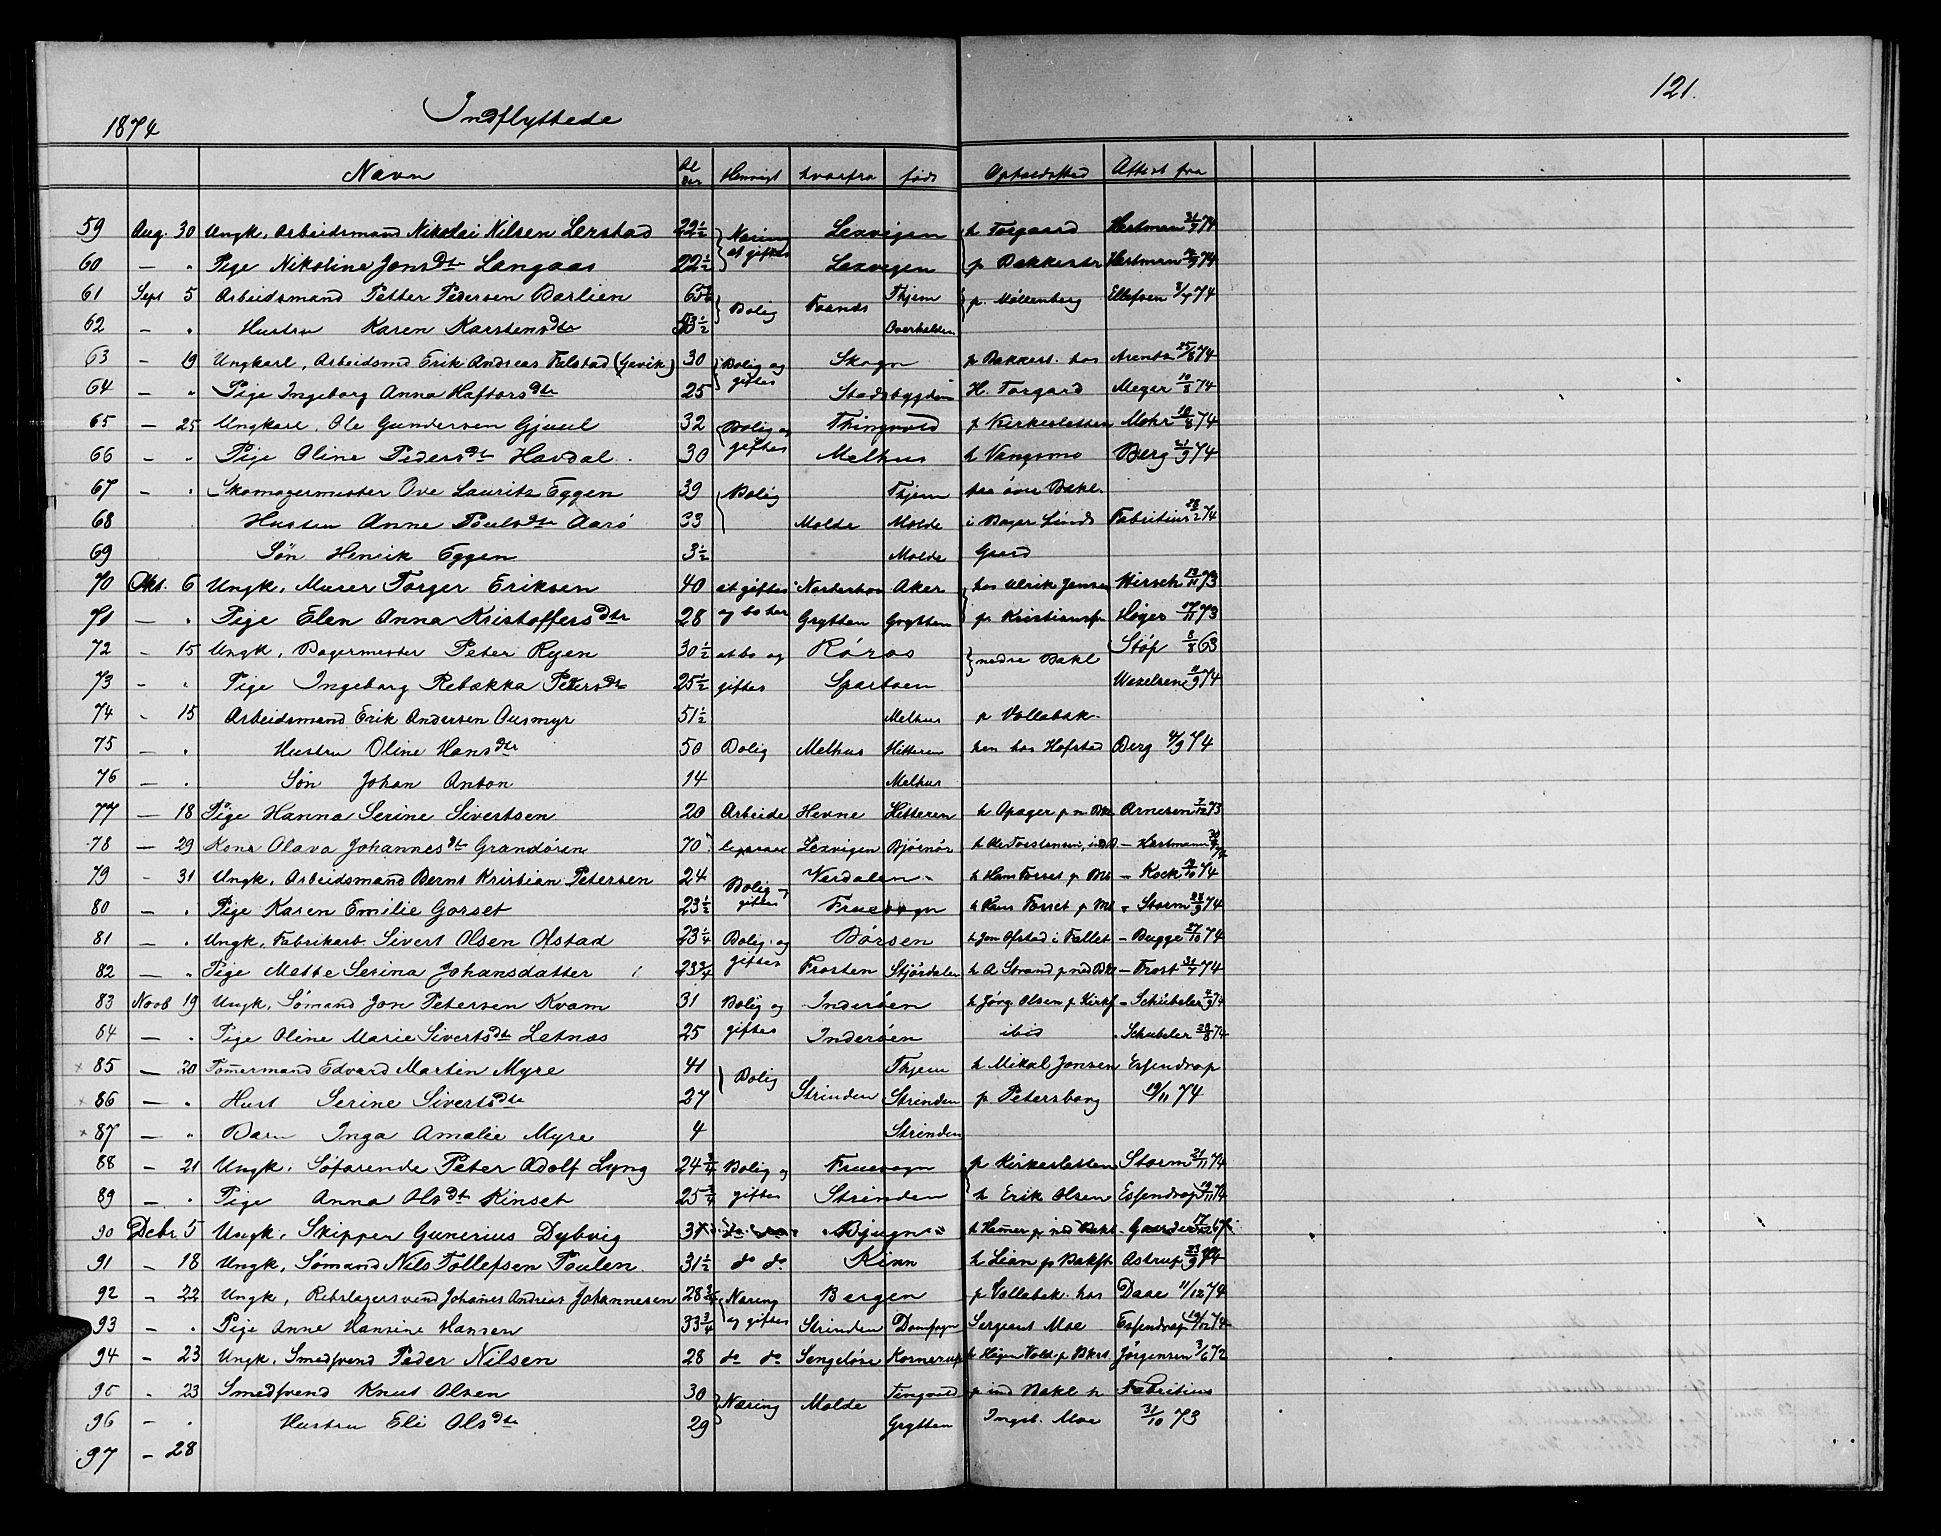 121.
1874 Indflyttede
Navn Alder Hensigt hvorfra født Opholdssted Attest fra
59 Aug. 30 Ungk. Arbeidsmand Nikolai Nilsen Lerstad 22½ Næring Lexvigen h Torgaard Hartman 31/7 74
60 — " Pige Nikoline Jonsdtr Langaas 22½ at giftes Lexvigen p Bakkestr Hartman 74
61 Sept 5 Arbeidsmand Petter Pedersen Barlien 65 Bolig Fosnes Thjem p. Møllenberg Ellefsen 74
62 — " Hustru Karen Karstensdtr 53½ Overhalden
63 — 19 Ungkarl, Arbeidsmd Erik Andreas Falstad (Gevik) 30 Bolig og Skogn p Bakkest. hos Arentz 25/8 74
64 — " Pige Ingeborg Anna Haftorsdtr 25 giftes Stadsbygden H. Torgard Meyer 10/8 74
65 — 25 Ungkarl, Ole Gundersen Gjuul 32 Bolig og Thingvold p Kirkesletten Mohr 10/8 74
66 — " Pige Oline Pedersdtr Havdal 30 giftes Melhus h Vangsmo Berg 21/9 74
67 — " Skomagermester Ove Lauritz Eggen 39 Bolig Thjem paa övre Bakl.
68 Hustru Anne Poulsdtr Aarö 33 Molde Molde i Bager Lunds Fabritius 28/2 74
69 Søn Henrik Eggen 3½ Molde Gaard
70 Okt. 6 Ungk. Murer Torger Eriksen 40 at giftes Norderhov Aker hos Ulrik Jensen Hirsch 13/11 73
71 — " Pige Elen Anna Kristoffersdtr 28 og bo her Grytten Grytten p. Kristiansf. Høyer 17/11 73
72 — 15 Ungk. Bagermester Peter Ryen 30½ at bo og Røros nedre Bakl Støp 8/8 63
73 — " Pige Ingeborg Rebekka Petersdtr 25½ giftes Sparboen Wexelsen 11/9 74
74 — 15 Arbeidsmand Erik Andersen Ausmyr 51½ Melhus p Vollabak.
75 — " Hustru Oline Hansdtr 50 Bolig Melhus Hitteren ken hos Hofstad Berg 4/9 74
76 — " Søn Johan Anton 14 Melhus
77 — 18 Pige Hanna Serine Sivertsen 20 Arbeide Hevne Hitteren h Opager p n Bkl Arnesen 7/12 73
78 — 29 Kone Olava Johannesdtr Grandøren 70 Lexvigen Bjørnør h Ole Torstensen, — Hartmann
79 — 31 Ungk. Arbeidsmand Bernt Kristian Petersen 24 Bolig Værdalen h Hans Forset p. Bkl — Kock 74
80 — " Pige Karen Emilie Gorset 23½ giftes Fruesogn h Hans Forset p Bkl " Storm 28/9 74
81 — " Ungk. Fabrikarb Sivert Olsen Olstad 23¼ Bolig og Børsen h Jon Ofstad i Fællet — Bugge 27/10 74
82 — " Pige Mette Serina Johansdatter 23¾ giftes Frosten Stjørdalen h A Strand p ned Bkl — Frost 31/7 74
83 Novb 19 Ungk. Sømand Jon Petersen Kvam 31 Bolig og Inderøen h Jörg. Olsen p Kirkf — Schübeler 74
84 — " Pige Oline Marie Sivertsdtr Letnæs 25 giftes Inderøen ibid " Schübeler 28/8 74
× 85 — 20 Tømermand Edvard Martin Myre 41 Bolig Thjem h Mikal Jensen Essendrop
× 86 — " Hust Serine Sivertsdtr 27 Strinden Strinden p Petersborg 19/11 74
× 87 — " Barn Inga Amalie Myre 4 Strinden
88 — 21 Ungk. Søfarende Peter Adolf Lyng 24¾ Bolig og Fruesogn p Kirkesletten Storm 21/11 74
89 — " Pige Anna Olsdtr Kinset 25¾ giftes Strinden h Erik Olsen Essendrop 19/11 74
90 Decbr 5 Ungk. Skipper Gunerius Dybvig 31 Bjugn h Hamer p ned Bakl Gaarder 17/12 67
91 — 18 Ungk. Sømand Nils Tollefsen Poulen 31½ do do Kinn h Lian p Bakft Astrup 23/9 74
92 — 22 Ungk. Rebslagersvend Johanes Andreas Johannesen 28¾ Næring Bergen p Vollabak. hos Daae 11/12 74
93 — " Pige Anne Hansine Hansen 33¾ og giftes Strinden Domsogn Sergeant Moe Essendrop 19/12 74
94 — 23 Ungk. Smedsvend Peder Nilsen 28 do do Sengeløse Kornerup h Höyen Vold p Bkst Jørgensen 3/6 72
95 — 23 Smedsvend Knut Olsen 30 Næring Molde Tingvold p ind Bakl h Fabritius
96 — " Hustru Eli Olsdtr 29 Grytten Ingeb. Moe 31/10 73
97 — 28